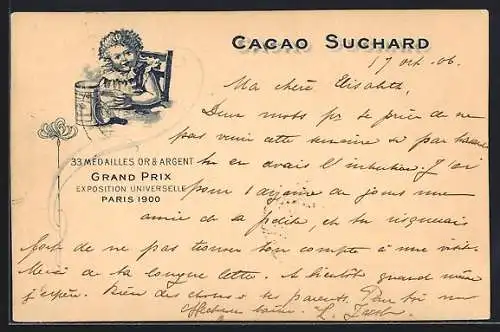 CACAO SUCHARD
17 oct. 06.
Ma chère Elisabeth,
Deux mots pr te prier de ne
pas venir cette semaine si par hasard
33 MÉDAILLES OR & ARGENT
tu en avais l'intention. J'ai
GRAND PRIX
EXPOSITION UNIVERSELLE
PARIS 1900
pour 1 de jours une
amie de la petite, et tu risquerais
fort de ne pas trouver ton compte à une visite.
Merci de ta longue lettre. A bientôt quand même
j'espère. Bien des choses à tes parents. Pour toi un
affectueux baiser. L.